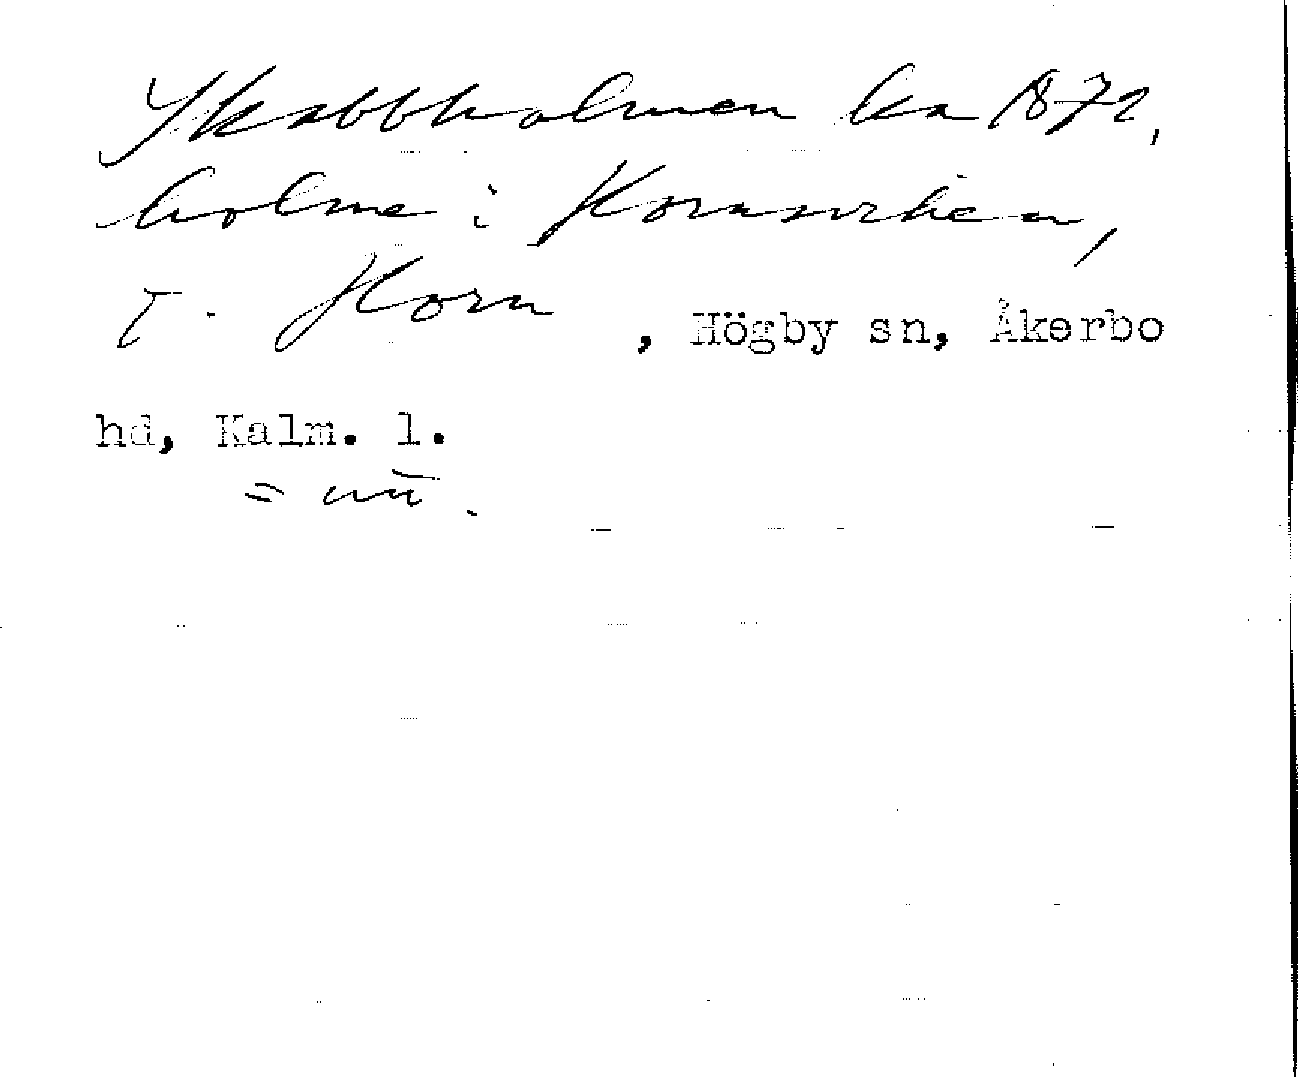 Skabbholmen ka 1872,
holme i Hornsviken,
t. Horn, Högby sn, Åkerbo
hd, Kalm. l.
= nu.